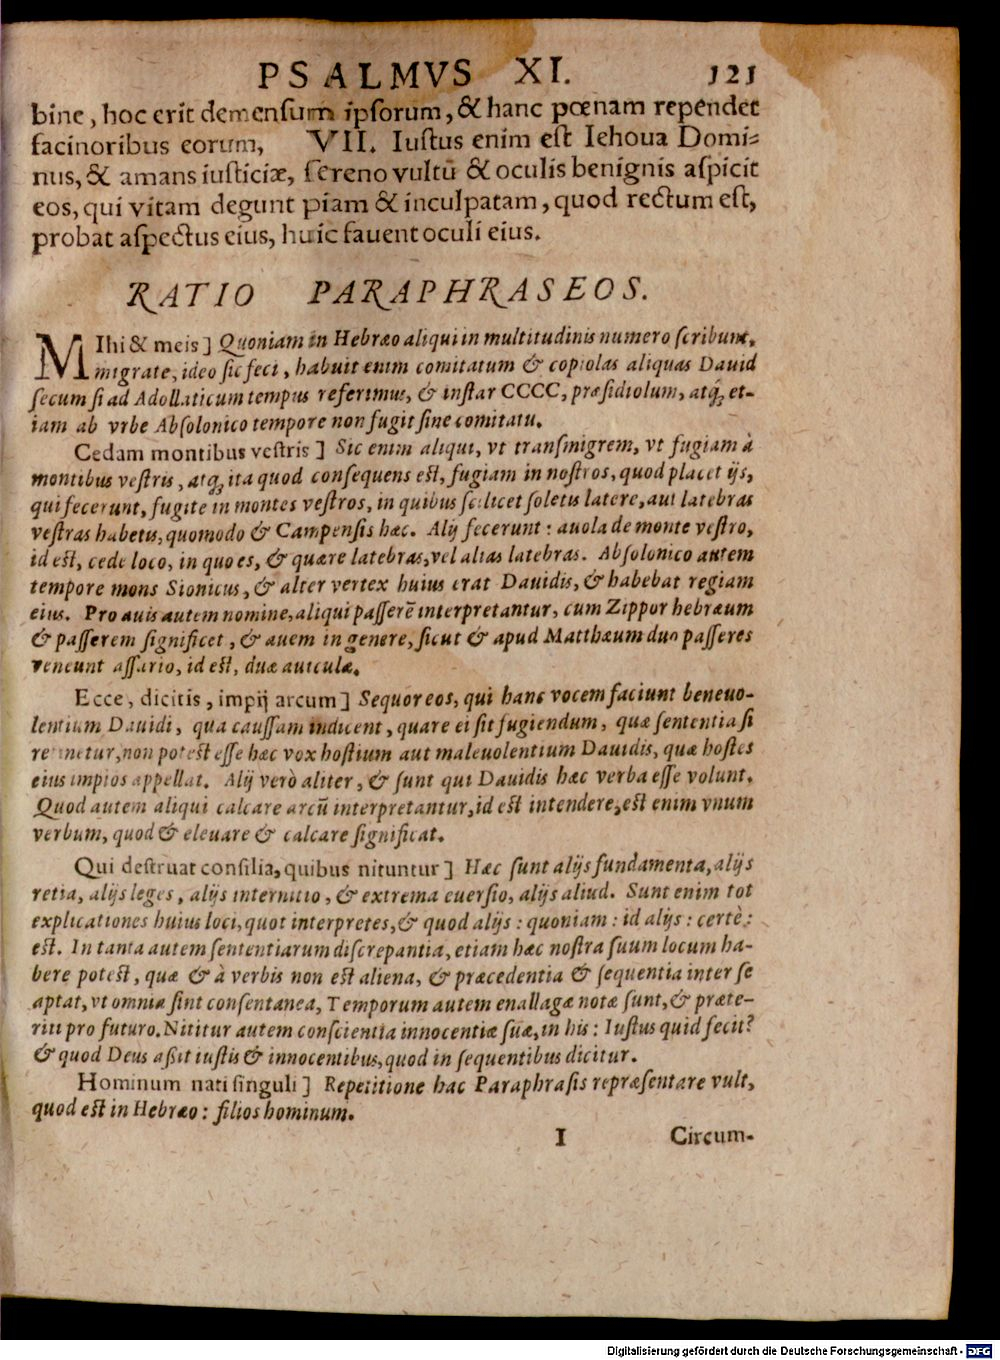 PSALMVS XI. 121
bine, hoc erit demensum ipsorum, & hanc pœnam rependet
facinoribus eorum, VII. Iustus enim est Iehoua Domi-
nus, & amans iusticiæ, sereno vultū & oculis benignis aspicit
eos, qui vitam degunt piam & inculpatam, quod rectum est,
probat aspectus eius, huic fauent oculi eius.
RATIO PARAPHRASEOS.
MIhi & meis] Quoniam in Hebræo aliqui in multitudinis numero scribunt,
migrate, ideo sic feci, habuit enim comitatum & copiolas aliquas Dauid
secum si ad Adollaticum tempus referimus, & instar CCCC, præsidiolum, atq; et-
iam ab vrbe Absolonico tempore non fugit sine comitatu.
Cedam montibus vestris] Sic enim aliqui, vt transmigrem, vt fugiam à
montibus vestris, atq; ita quod consequens est, fugiam in nostros, quod placet ijs,
qui fecerunt, fugite in montes vestros, in quibus scilicet soletis latere, aut latebras
vestras habetis, quomodo & Campensis hæc. Alij fecerunt: auola de monte vestro,
id est, cede loco, in quo es, & quære latebras, vel alias latebras. Absolonico autem
tempore mons Sionicus, & alter vertex huius erat Dauidis, & habebat regiam
eius. Pro auis autem nomine, aliqui passerē interpretantur, cum Zippor hebræum
& passerem significet, & auem in genere, sicut & apud Matthæum duo passeres
veneunt assario, id est, duæ auiculæ.
Ecce, dicitis, impij arcum] Sequor eos, qui hanc vocem faciunt beneuo-
lentium Dauidi, qua caussam inducent, quare ei sit fugiendum, quæ sententia si
retinetur, non potest esse hæc vox hostium aut maleuolentium Dauidis, quæ hostes
eius impios appellat. Alij verò aliter, & sunt qui Dauidis hæc verba esse volunt.
Quod autem aliqui calcare arcū interpretantur, id est intendere, est enim vnum
verbum, quod & eleuare & calcare significat.
Qui destruat consilia, quibus nituntur] Hæc sunt alijs fundamenta, alijs
retia, alijs leges, alijs internitio, & extrema euersio, alijs aliud. Sunt enim tot
explicationes huius loci, quot interpretes, & quod alijs: quoniam: id alijs: certè:
est. In tanta autem sententiarum discrepantia, etiam hæc nostra suum locum ha-
bere potest, quæ & à verbis non est aliena, & præcedentia & sequentia inter se
aptat, vt omnia sint consentanea, Temporum autem enallagæ notæ sunt, & præte-
riti pro futuro. Nititur autem conscientia innocentiæ suæ, in his: Iustus quid fecit?
& quod Deus aßit iustis & innocentibus, quod in sequentibus dicitur.
Hominum nati singuli] Repetitione hac Paraphrasis repræsentare vult,
quod est in Hebræo: filios hominum.
I Circum-
Digitalisierung gefördert durch die Deutsche Forschungsgemeinschaft - DFG